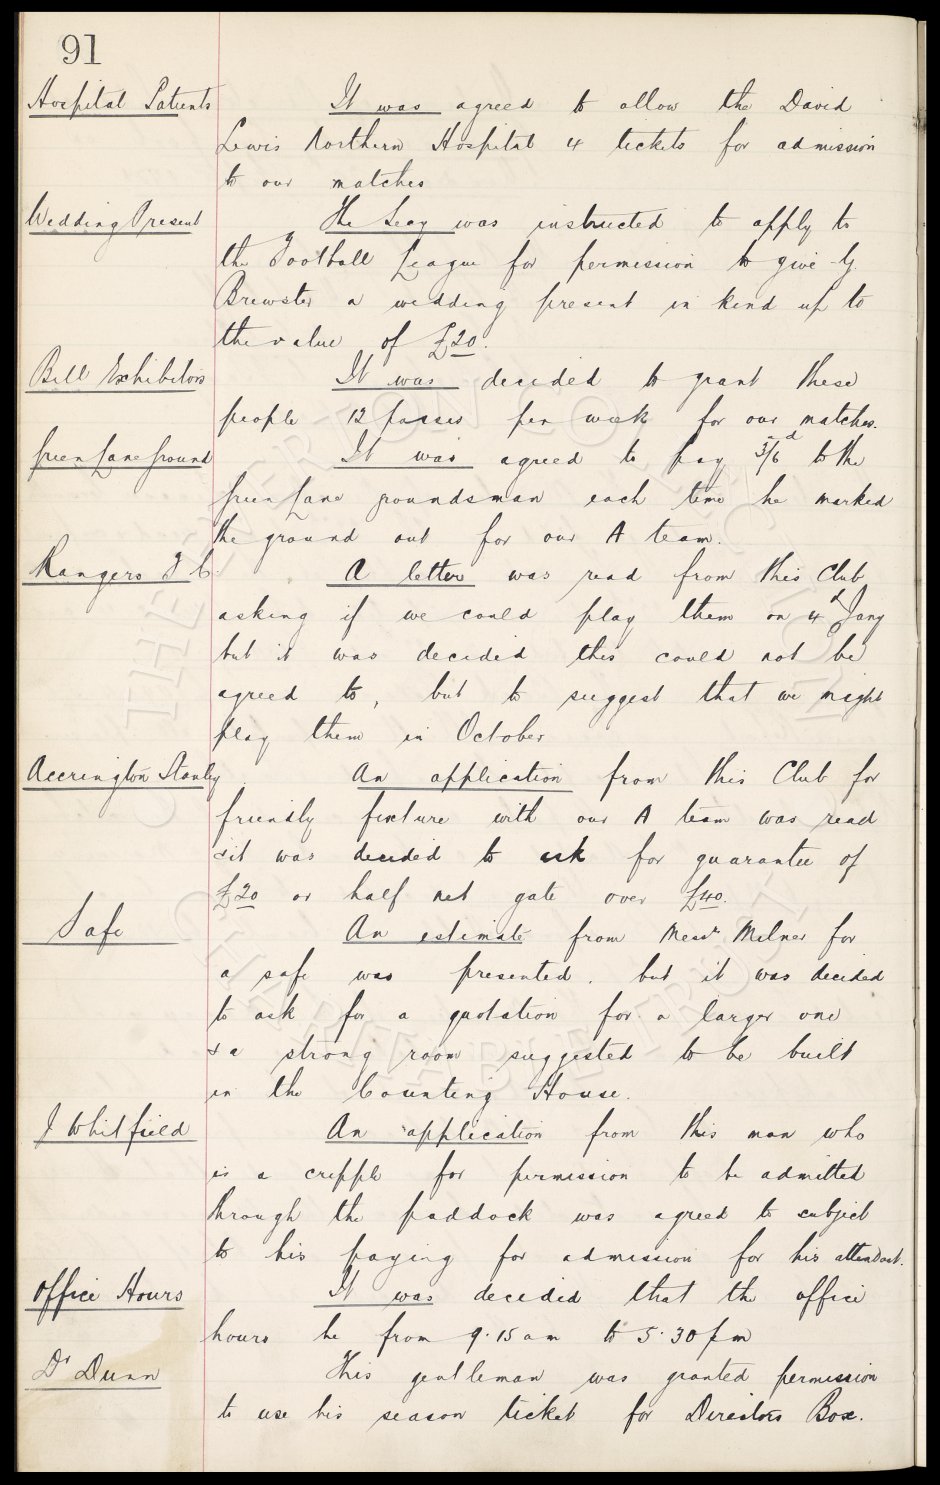 91
Hospital Patients It was agreed to allow the David
Lewis Northern Hospital 4 tickets for admission
to our matches
Wedding Present The Secy was instructed to apply to
the Football League for permission to give G.
Brewster a wedding present in kind up to
the value of £20.
Bill Exhibitors It was decided to grant these
people 12 passes per week for our matches.
Green Lane Ground It was agreed to pay 3/6d to the
Green Lane groundsman each time he marked
the ground out for our A team.
Rangers F C. A letter was read from this Club
asking if we could play them on 4th Jany
but it was decided this could not be
agreed to, but to suggest that we might
play them in October
Accrington Stanley An application from this Club for
friendly fixture with our A team was read
& it was decided to ask for guarantee of
£20 or half net gate over £40.
Safe An estimate from Messrs Milner for
a safe was presented. but it was decided
to ask for a quotation for a larger one
& a strong room suggested to be built
in the Counting House.
J Whitfield An application from this man who
is a cripple for permission to be admitted
through the paddock was agreed to subject
to his paying for admission for his attendant.
Office Hours It was decided that the office
hours be from 9.15 am to 5.30 pm
Dr Dunn This gentleman was granted permission
to use his season ticket for Directors Box.
THE EVERTON COLLECTION
CHARITABLE TRUST